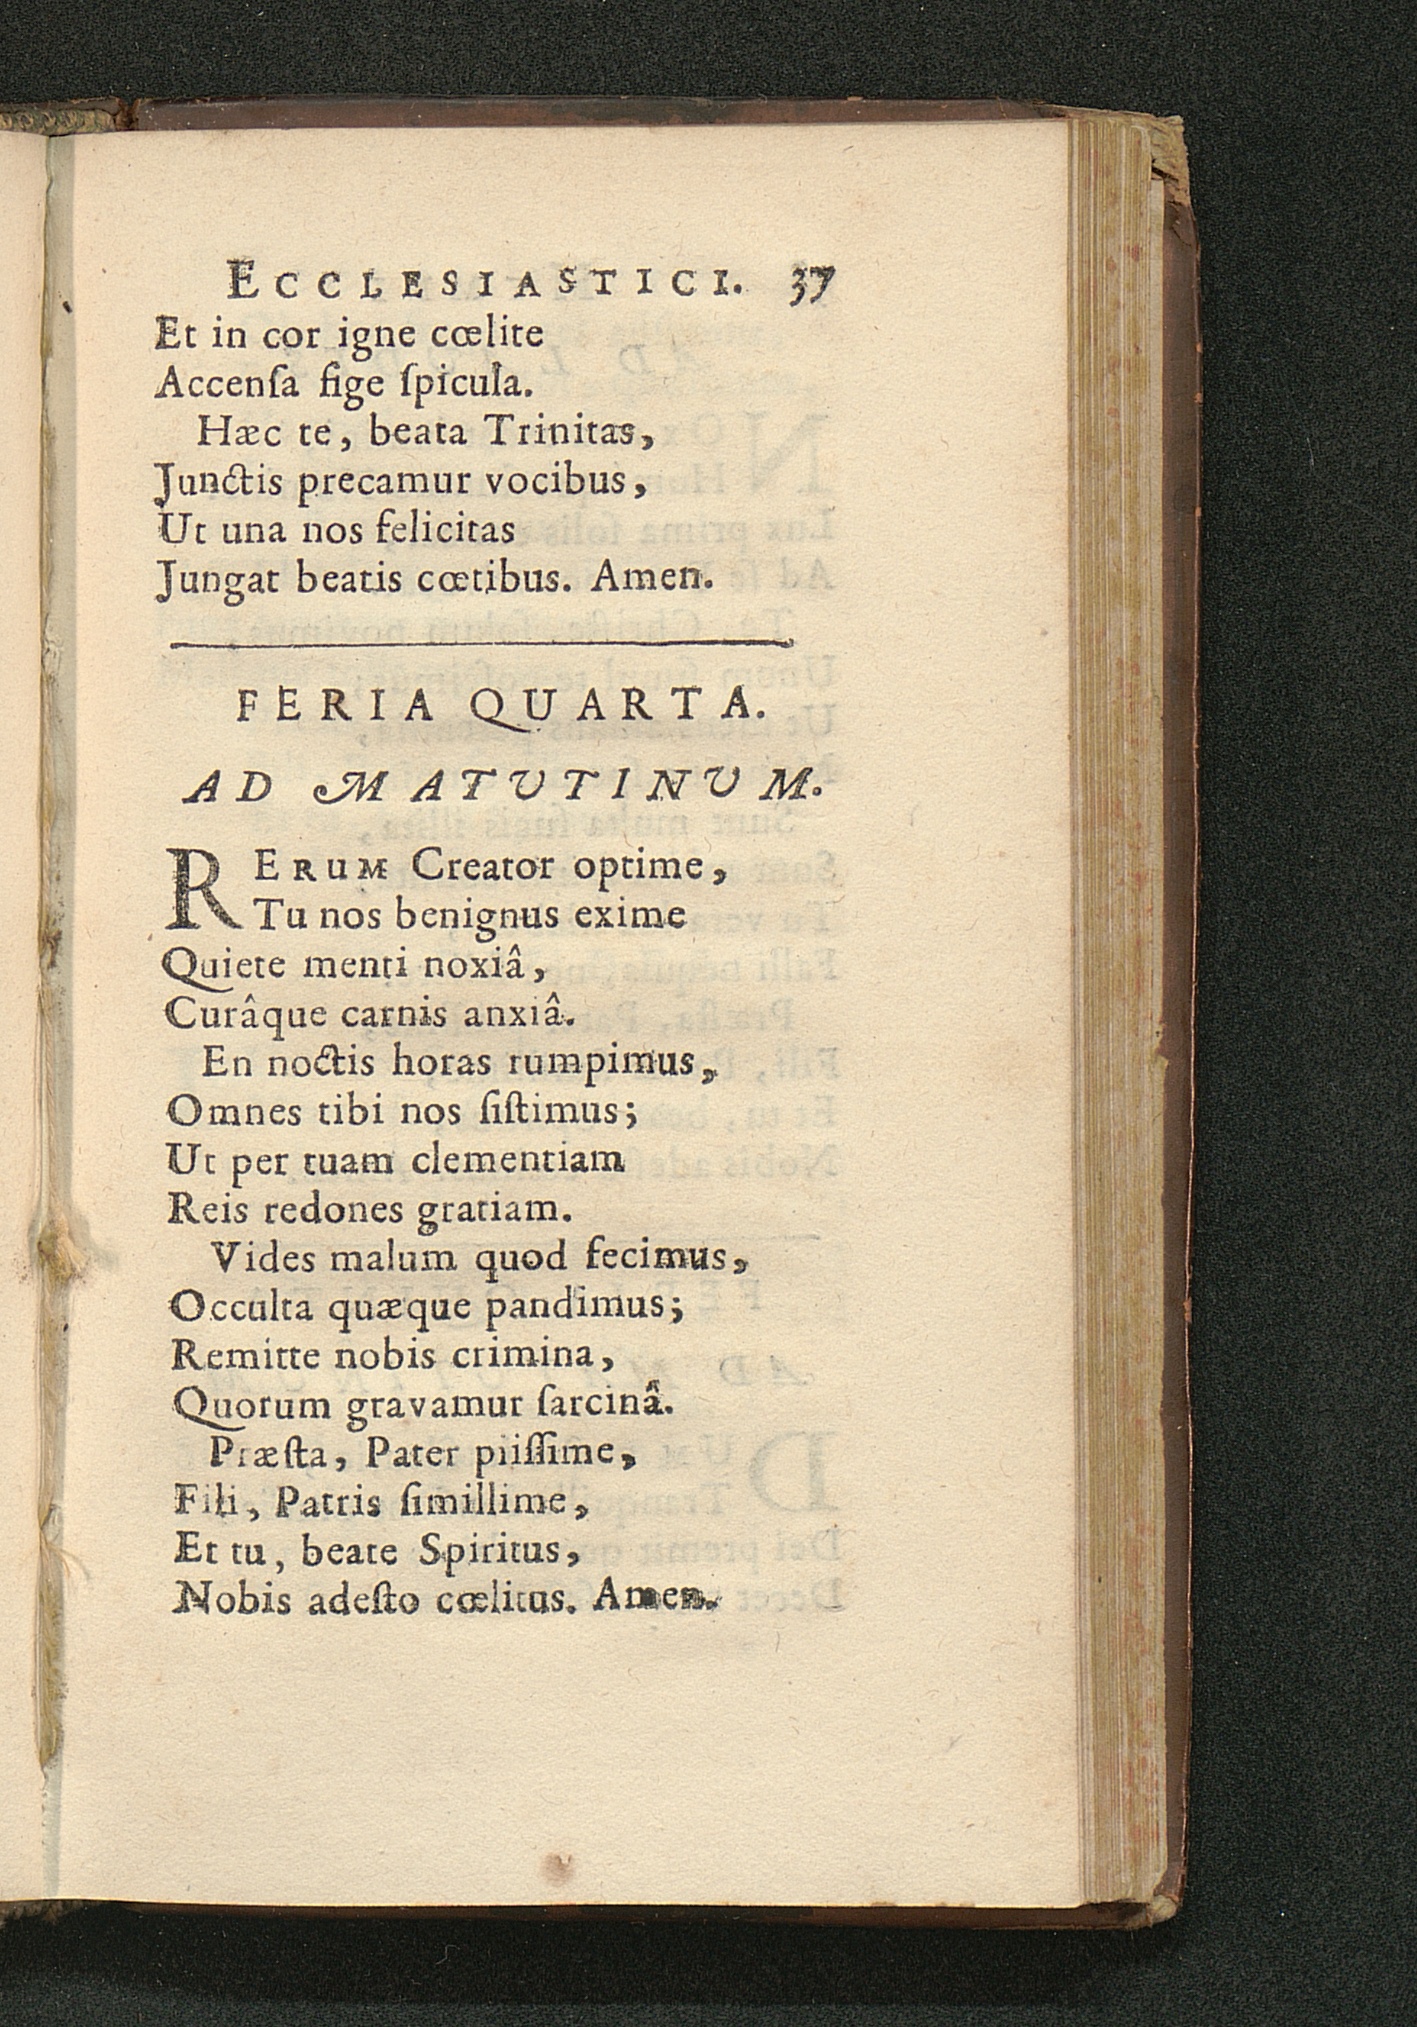 ECCLESIASTICI. 37
Et in cor igne cœlite
Accenſa fige ſpicula.
Hæc te, beata Trinitas,
Junctis precamur vocibus,
Ut una nos felicitas
Jungat beatis cœtibus. Amen.
FERIA QUARTA.
AD MATUTINUM.
RERUM Creator optime,
Tu nos benignus exime
Quiete menti noxiâ,
Curâque carnis anxiâ.
En noctis horas rumpimus,
Omnes tibi nos ſiſtimus;
Ut per tuam clementiam
Reis redones gratiam.
Vides malum quod fecimus,
Occulta quæque pandimus;
Remitte nobis crimina,
Quorum gravamur ſarcinâ.
Præſta, Pater piiſſime,
Fili, Patris ſimillime,
Et tu, beate Spiritus,
Nobis adeſto cœlitus. Amen.